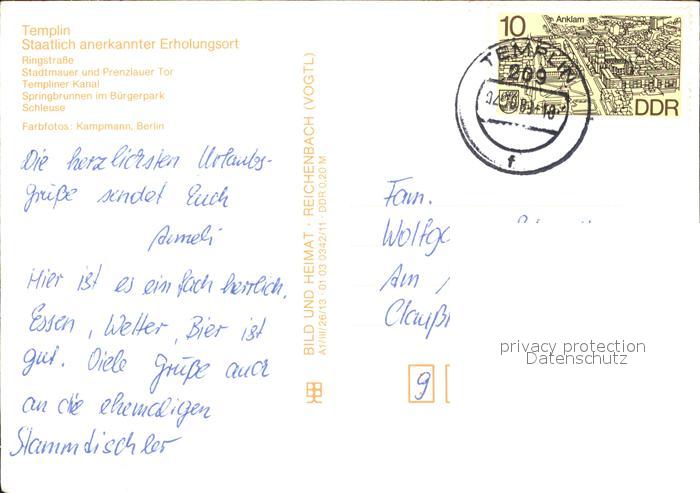 Templin
Staatlich anerkannter Erholungsort
Ringstraße
Stadtmauer und Prenzlauer Tor
Templiner Kanal
Springbrunnen im Bürgerpark
Schleuse
Farbfotos: Kampmann, Berlin
Die herzlichsten Urlaubs-
grüße sendet Euch
Anneli
Hier ist es einfach herrlich.
Essen, Wetter, Bier ist
gut. Viele Grüße auch
an die ehemaligen
Stammtischler
BILD UND HEIMAT · REICHENBACH (VOGTL)
A1/III/26/13 · 01 03 0342/11 · DDR 0,20 M
10
Anklam
DDR
TEMPLIN
209
f
Fam.
Wolfg
Am
Claußn
9
privacy protection
Datenschutz